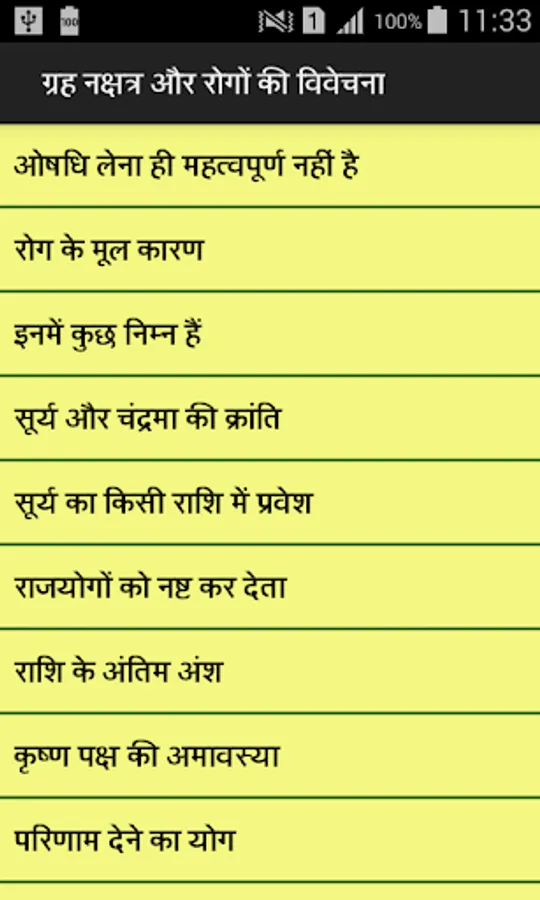 100
1
100%
11:33
ग्रह नक्षत्र और रोगों की विवेचना
ओषधि लेना ही महत्वपूर्ण नहीं है
रोग के मूल कारण
इनमें कुछ निम्न हैं
सूर्य और चंद्रमा की क्रांति
सूर्य का किसी राशि में प्रवेश
राजयोगों को नष्ट कर देता
राशि के अंतिम अंश
कृष्ण पक्ष की अमावस्या
परिणाम देने का योग